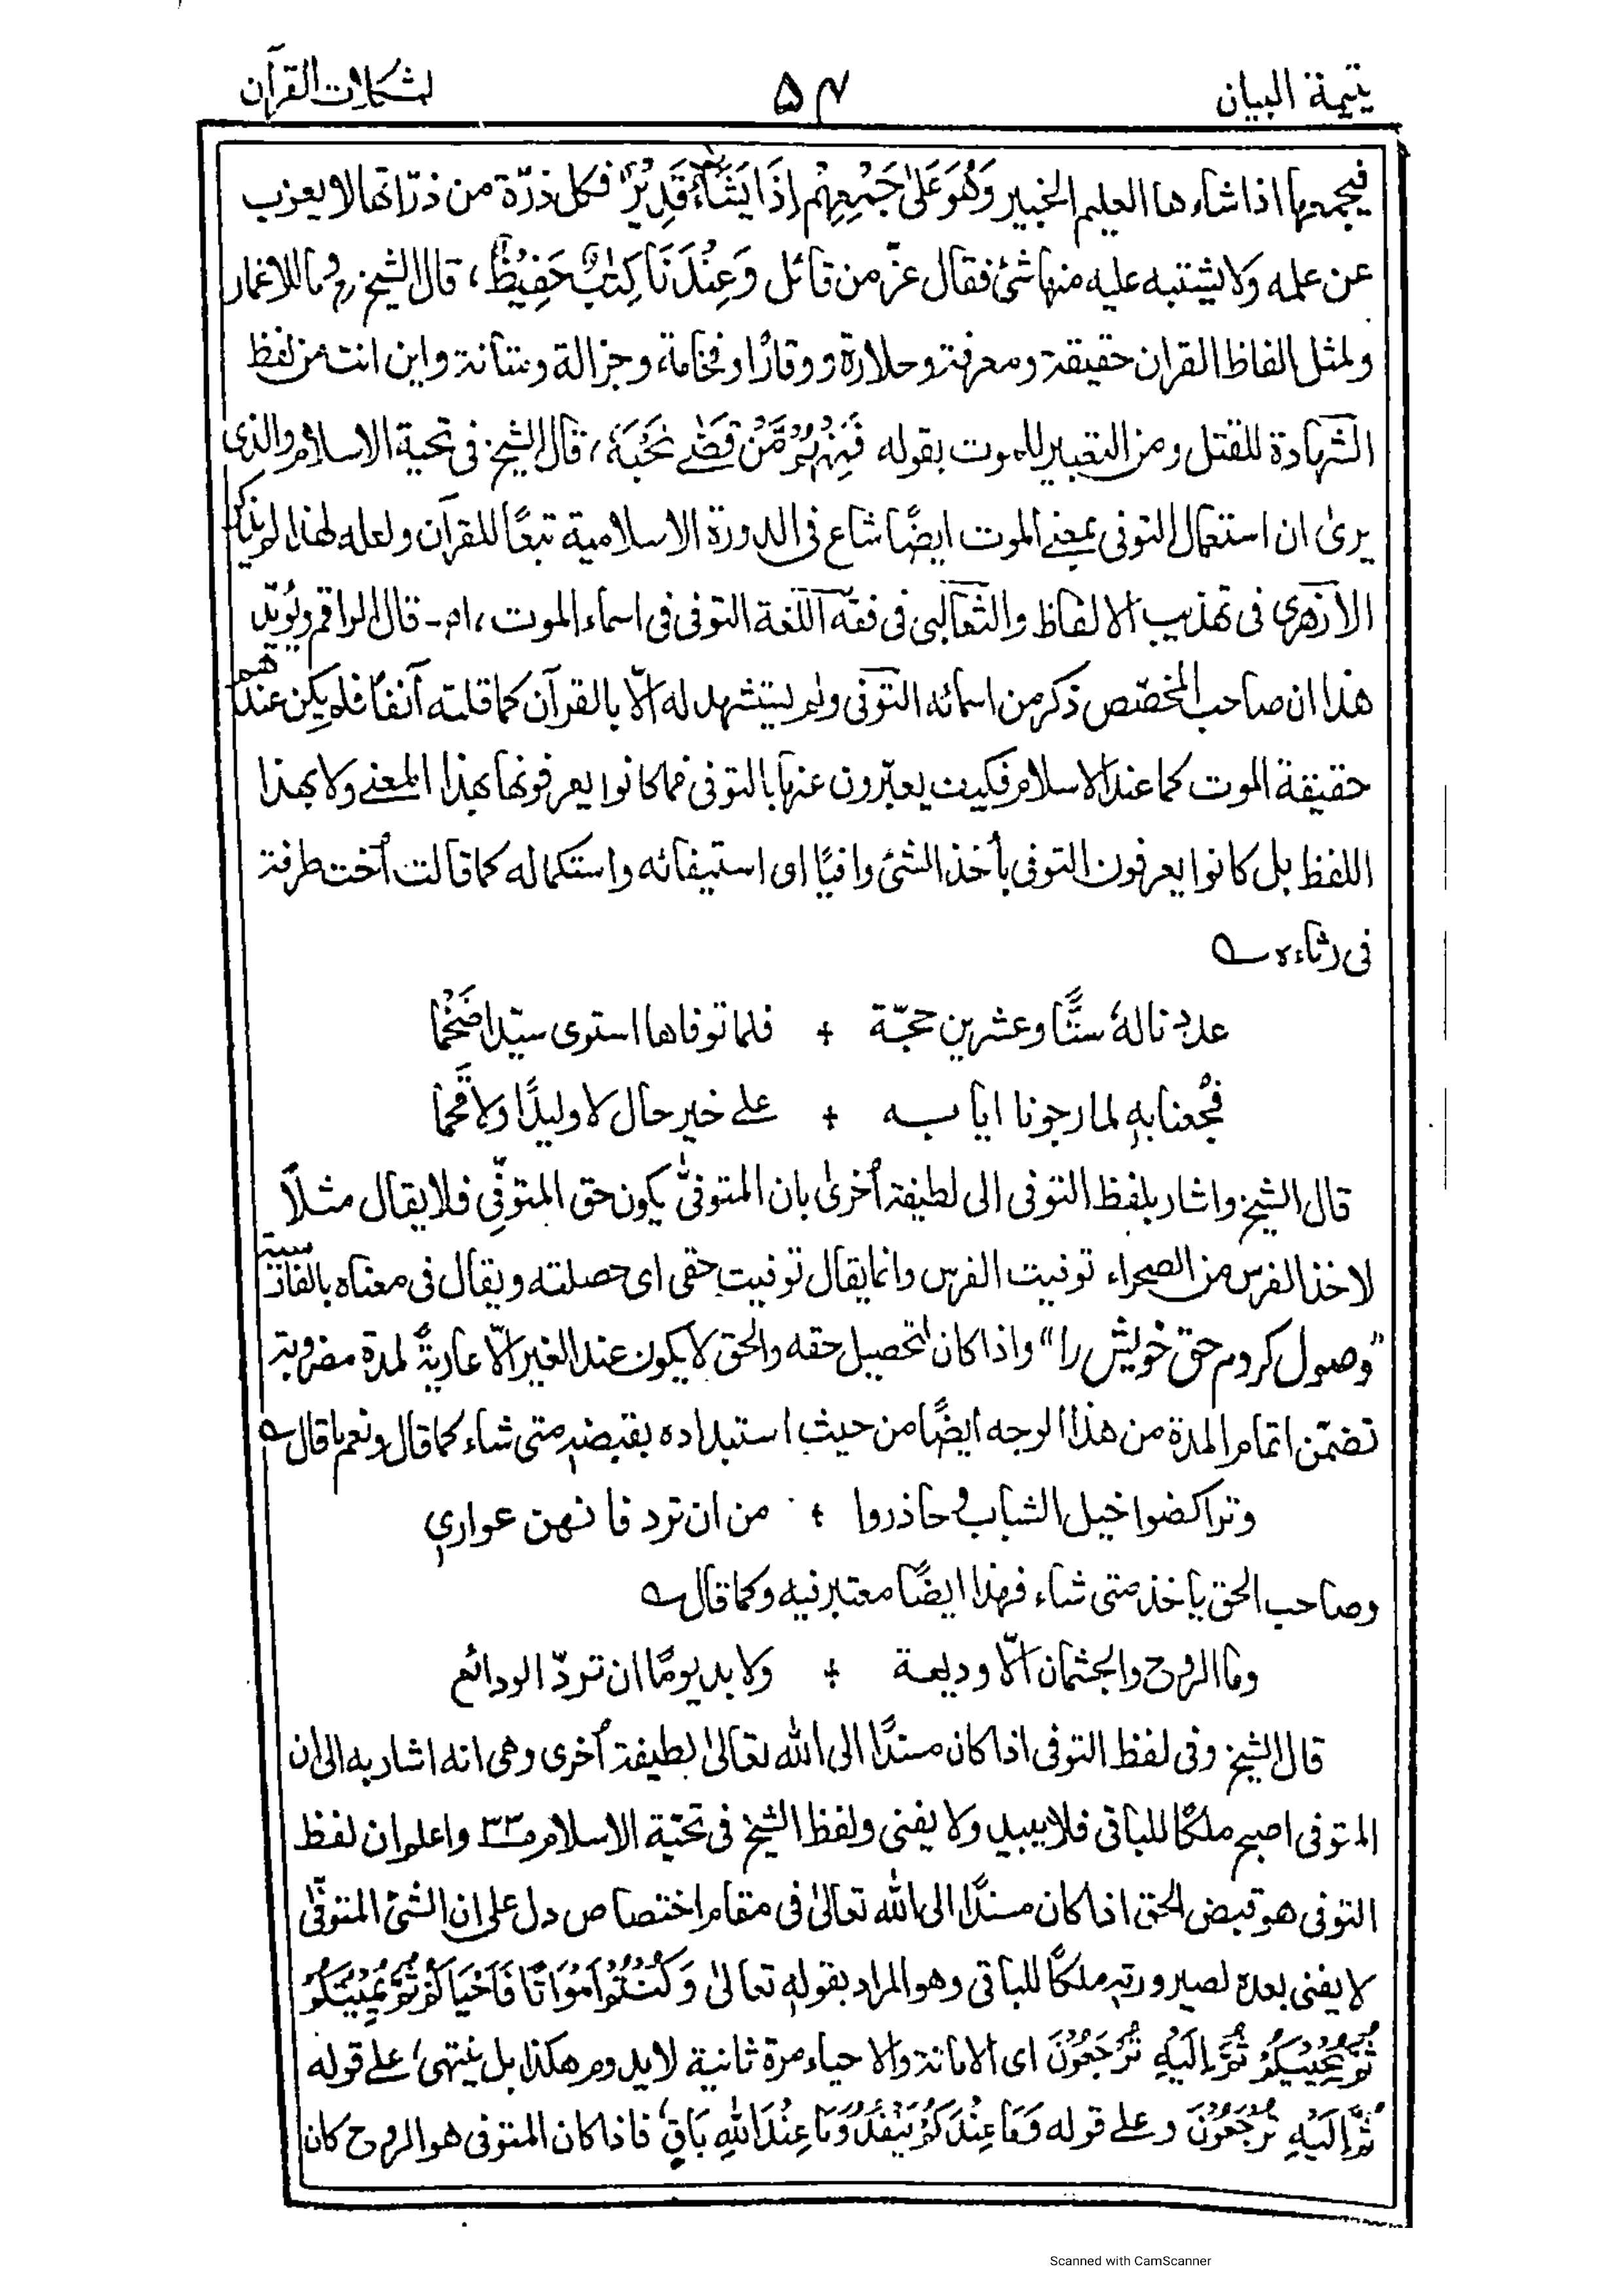 يتيمة البيان
۵۴
لمشكلات القرآن
فيجمعها اذا شاءها العليم الخبير وَهُوَ عَلىٰ جَمْعِهِمْ إِذَا يَشَآءُ قَدِيْرٌ فكل ذرّة من ذرّاتها لا يعزب
عن علمه ولا يشتبه عليه منها شئ فقال عزّ من قائل وَعِنْدَنَا كِتٰبٌ حَفِيْظٌ، قال الشيخ رح وما للاغمار
ولمثل الفاظ القران حقيقة ومعرفة وحلاوة ووقارًا وفخامة، وجزالة ومتانة واين انت من لفظ
الشهادة للقتل ومن التعبير للموت بقوله فَمِنْهُمْ مَّنْ قَضٰى نَحْبَهٗ، قال الشيخ فى تحية الاسلام والذى
يرىٰ ان استعمال التوفى بمعنى الموت ايضًا شاع فى الدورة الاسلامية تبعًا للقرآن ولعله لهذا لم يذكر
الازهرى فى تهذيب الالفاظ والثعالبى فى فقه اللغة التوفى فى اسماء الموت، اه- قال الراقم ويُؤيّد
هذا ان صاحب المخصّص ذكر من اسمائه التوفى ولم يستشهد له الّا بالقرآن كما قلته آنفًا فلم يكن عندهم
حقيقة الموت كما عند الاسلام فكيف يعبّرون عنها بالتوفى فما كانوا يعرفونها بهذا المعنى ولا بهذا
اللفظ بل كانوا يعرفون التوفى بأخذ الشئ وافيًا اى استيفائه واستكماله كما قالت أخت طرفة
فى رثاءه
عددنا لهٗ ستًّا وعشرين حجّة + فلما توفاها استوى سيّدا ضخْما
فُجعنا بهٖ لما رجونا ايابــه + على خير حال لا وليدًا ولا قحما
قال الشيخ واشار بلفظ التوفى الى لطيفة أخرىٰ بان المتوفىٰ يكون حق المتوفِّى فلا يقال مثلًا
لاخذ الفرس من الصحراء توفيت الفرس وانما يقال توفيت حقى اى حصلته ويقال فى معناه بالفارسية
"وصول كردم حق خويش را" واذا كان لتحصيل حقه والحق لا يكون عند الغير الّا عاريةً لمدة مضروبة
تضمّن اتمام المدة من هذا الوجه ايضًا من حيث استبداده بقبضهٖ متى شاء كما قال ونعم ما قال
وتراكضوا خيل الشباب وحاذروا + من ان ترد فانهن عوارى
وصاحب الحق يأخذ متى شاء، فهذا ايضًا معتبر فيه وكما قال
وما الروح والجثمان الّا وديعة + ولا بد يومًا ان تردّ الودائع
قال الشيخ وفى لفظ التوفى اذا كان مسندًا الى الله تعالىٰ لطيفة أخرى وهى انه اشار به الى ان
المتوفى اصبح ملكًا للباقى فلا يبيد ولا يفنى ولفظ الشيخ فى تحيّة الاسلام ص۳۳ واعلم ان لفظ
التوفى هو قبض الحق اذا كان مسندًا الى الله تعالىٰ فى مقام اختصاص دل على ان الشئ المتوفّٰى
لا يفنى بعده لصيرورته ملكًا للباقى وهو المراد بقولهٖ تعالىٰ وَكُنْتُمْ اَمْوَاتًا فَاَحْيَاكُمْ ثُمَّ يُمِيْتُكُمْ
ثُمَّ يُحْيِيْكُمْ ثُمَّ اِلَيْهِ تُرْجَعُوْنَ اى الاماتة والاحياء مرة ثانية لا يدوم هكذا بل ينتهى، على قوله
ثُمَّ اِلَيْهِ تُرْجَعُوْنَ وعلى قوله وَمَا عِنْدَكُمْ يَنْفَدُ وَمَا عِنْدَ اللهِ بَاقٍ، فاذا كان المتوفى هو الروح كان
Scanned with CamScanner